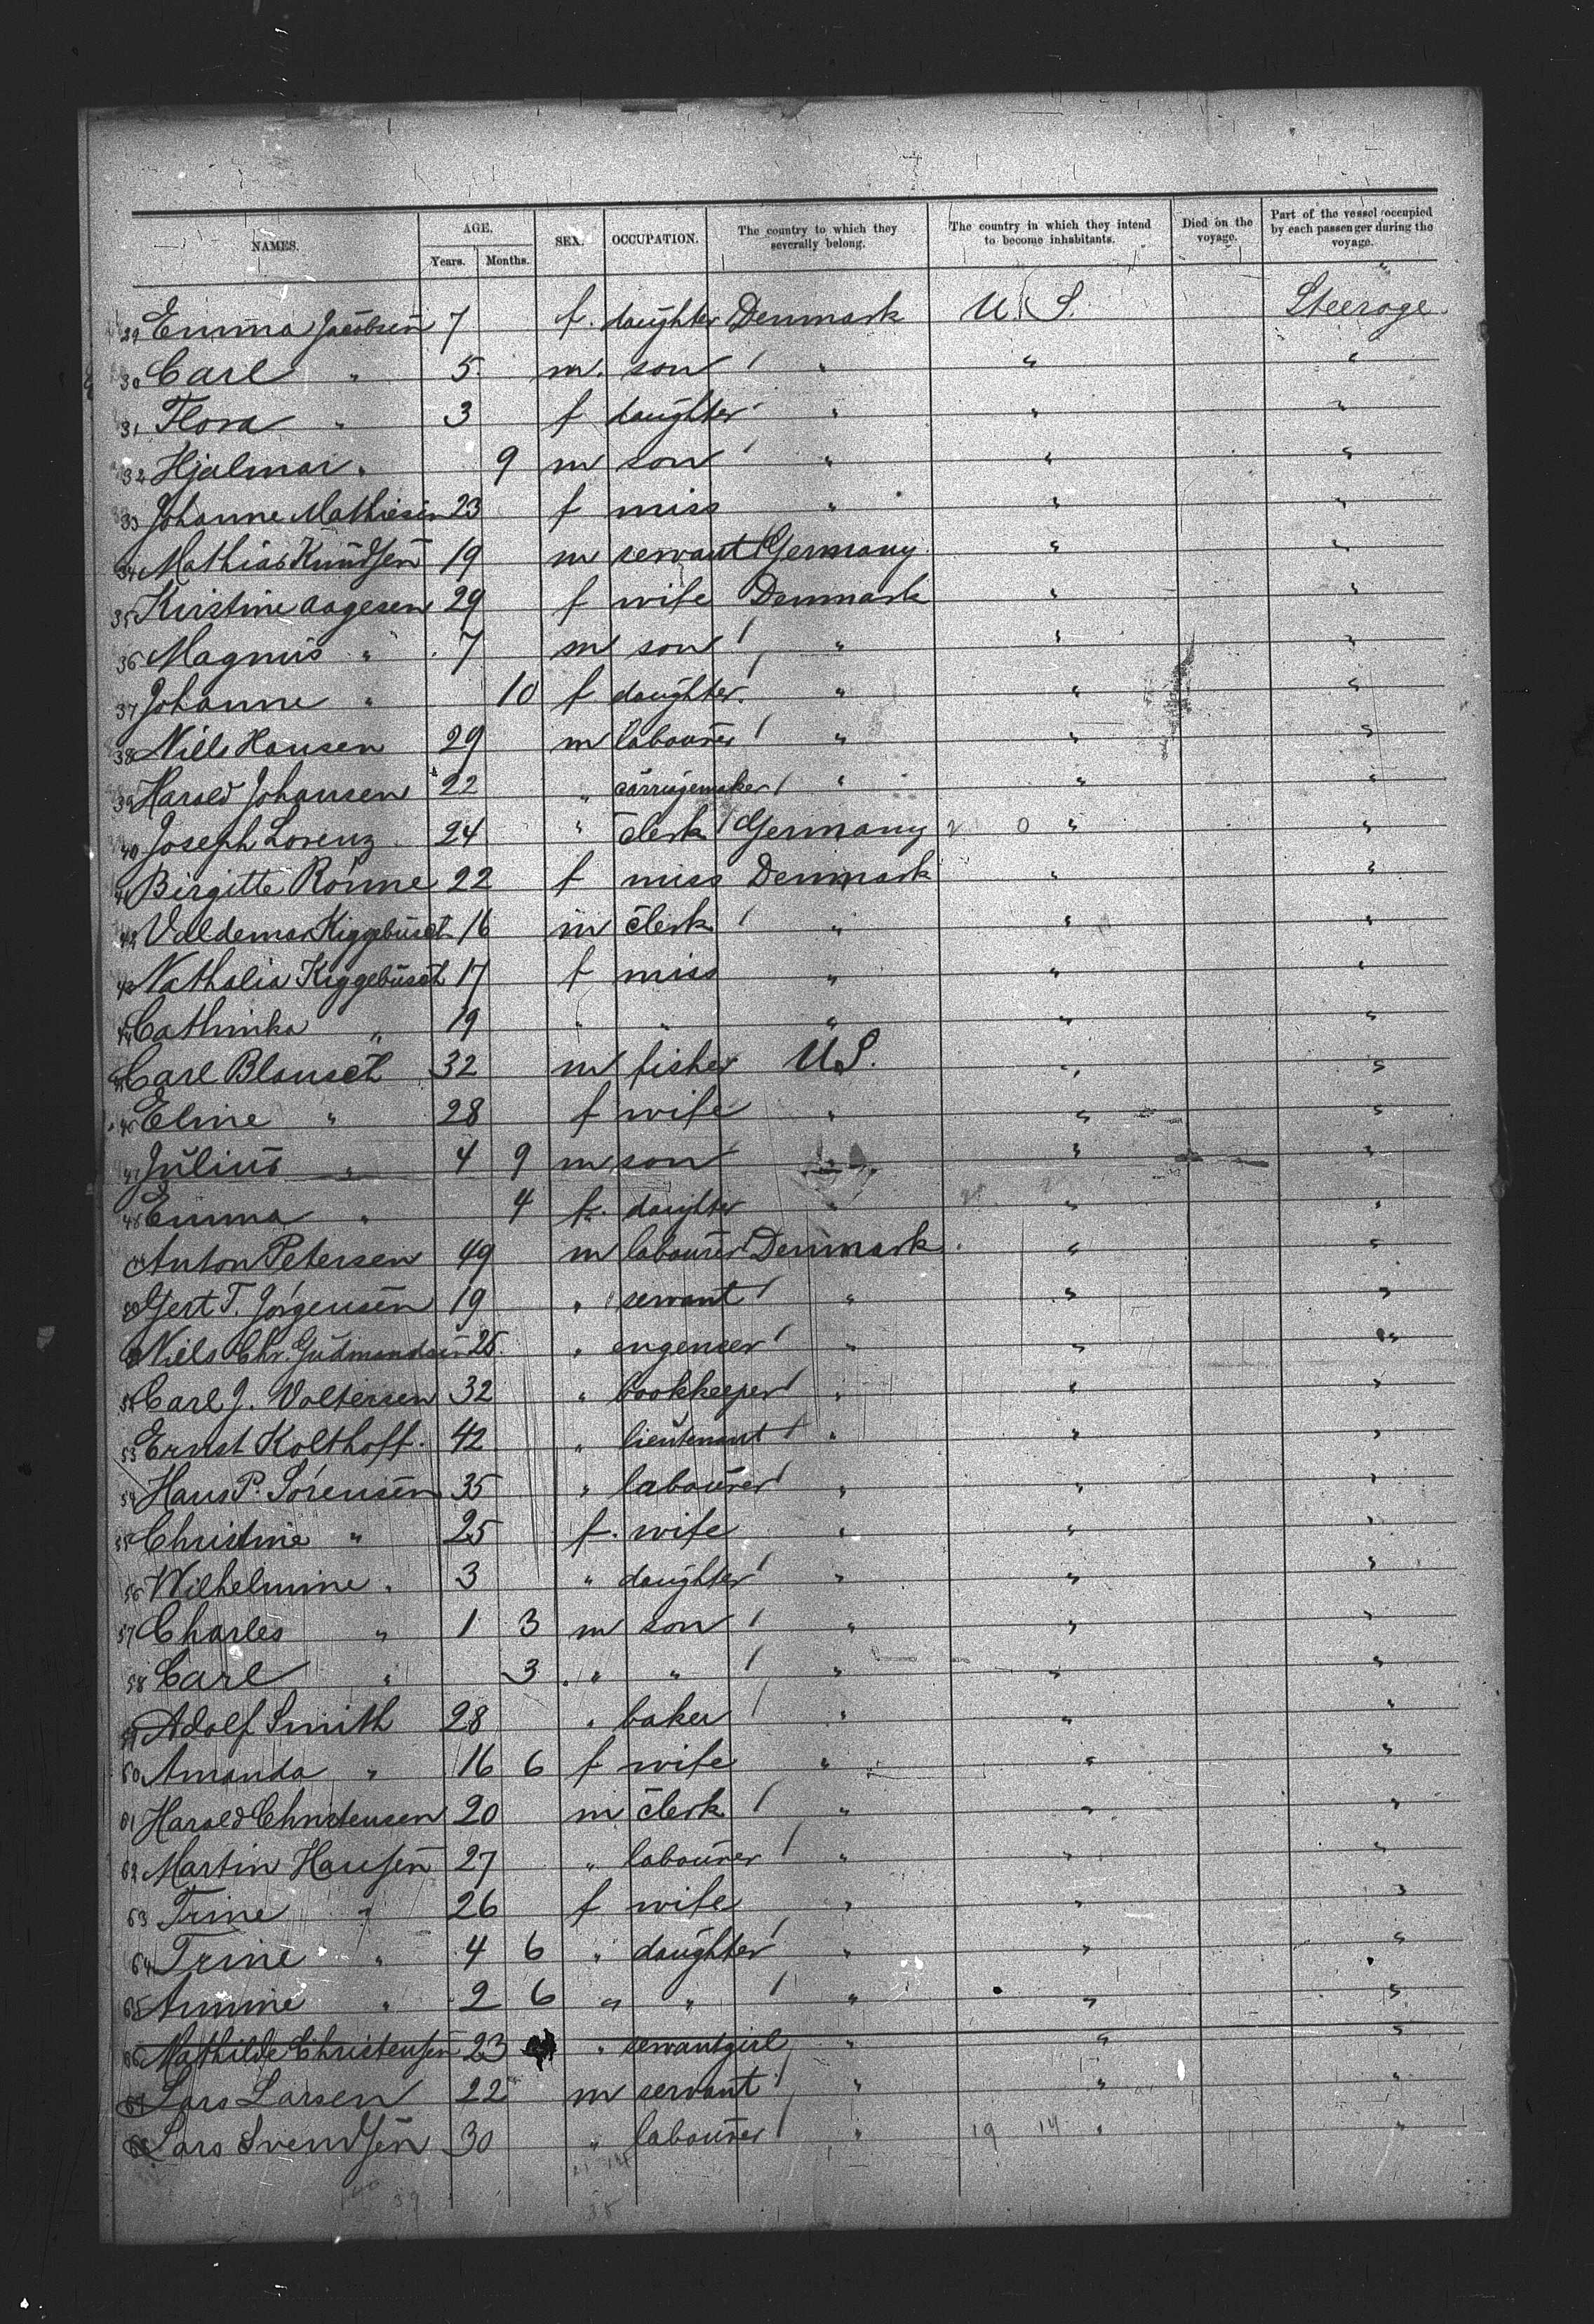 NAMES. AGE. SEX. OCCUPATION. The country to which they severally belong. The country in which they intend to become inhabitants. Died on the voyage. Part of the vessel occupied by each passenger during the voyage.
Years. Months.
29 Emma Jacobsen 7 f. daughter Denmark U. S. Steerage
30 Carl " 5 m. son " " "
31 Flora " 3 f daughter " " "
32 Hjalmar " 9 m son " " "
33 Johanne Mathiesen 23 f miss " " "
34 Mathias Knudsen 19 m servant Germany " "
35 Kirstine Aagesen 29 f wife Denmark " "
36 Magnus " 7 m son " " "
37 Johanne " 10 f. daughter " " "
38 Niels Hansen 29 m labourer " " "
39 Harald Johansen 22 " carriagemaker " " "
40 Joseph Lorenz 24 " clerk Germany " "
41 Birgitte Rönne 22 f miss Denmark " "
42 Valdemar Kiggebusch 16 m clerk " " "
43 Nathalia Kiggebusch 17 f miss " " "
44 Cathinka " 19 " " " " "
45 Carl Blausch 32 m fisher U.S. " "
46 Eline " 28 f wife " " "
47 Julius " 4 9 m son " " "
48 Emma " 4 f. daughter " " "
Anton Petersen 49 m labourer Denmark " "
50 Gert T. Jörgensen 19 " servant " " "
Niels Chr. Gudmandsen 25 " engeneer " " "
52 Carl J. Woltersen 32 " bookkeeper " " "
53 Ernst Kolthoff. 42 " lieutenant " " "
54 Hans P. Sörensen 35 " labourer " " "
55 Christine " 25 f. wife " " "
56 Wilhelmine " 3 " daughter " " "
57 Charles " 1 3 m son " " "
58 Carl " 3 " " " " "
59 Adolf Smith 28 " baker " " "
60 Amanda " 16 6 f wife " " "
61 Harald Christensen 20 m clerk " " "
62 Martin Hansen 27 " labourer " " "
63 Trine " 26 f wife " " "
64 Trine " 4 6 " daughter " " "
65 Annine " 2 6 " " " " "
66 Mathilde Christensen 23 " servantgirl " " "
67 Lars Larsen 22 m servant " " "
68 Lars Svendsen 30 " labourer " 19 14 " "
39